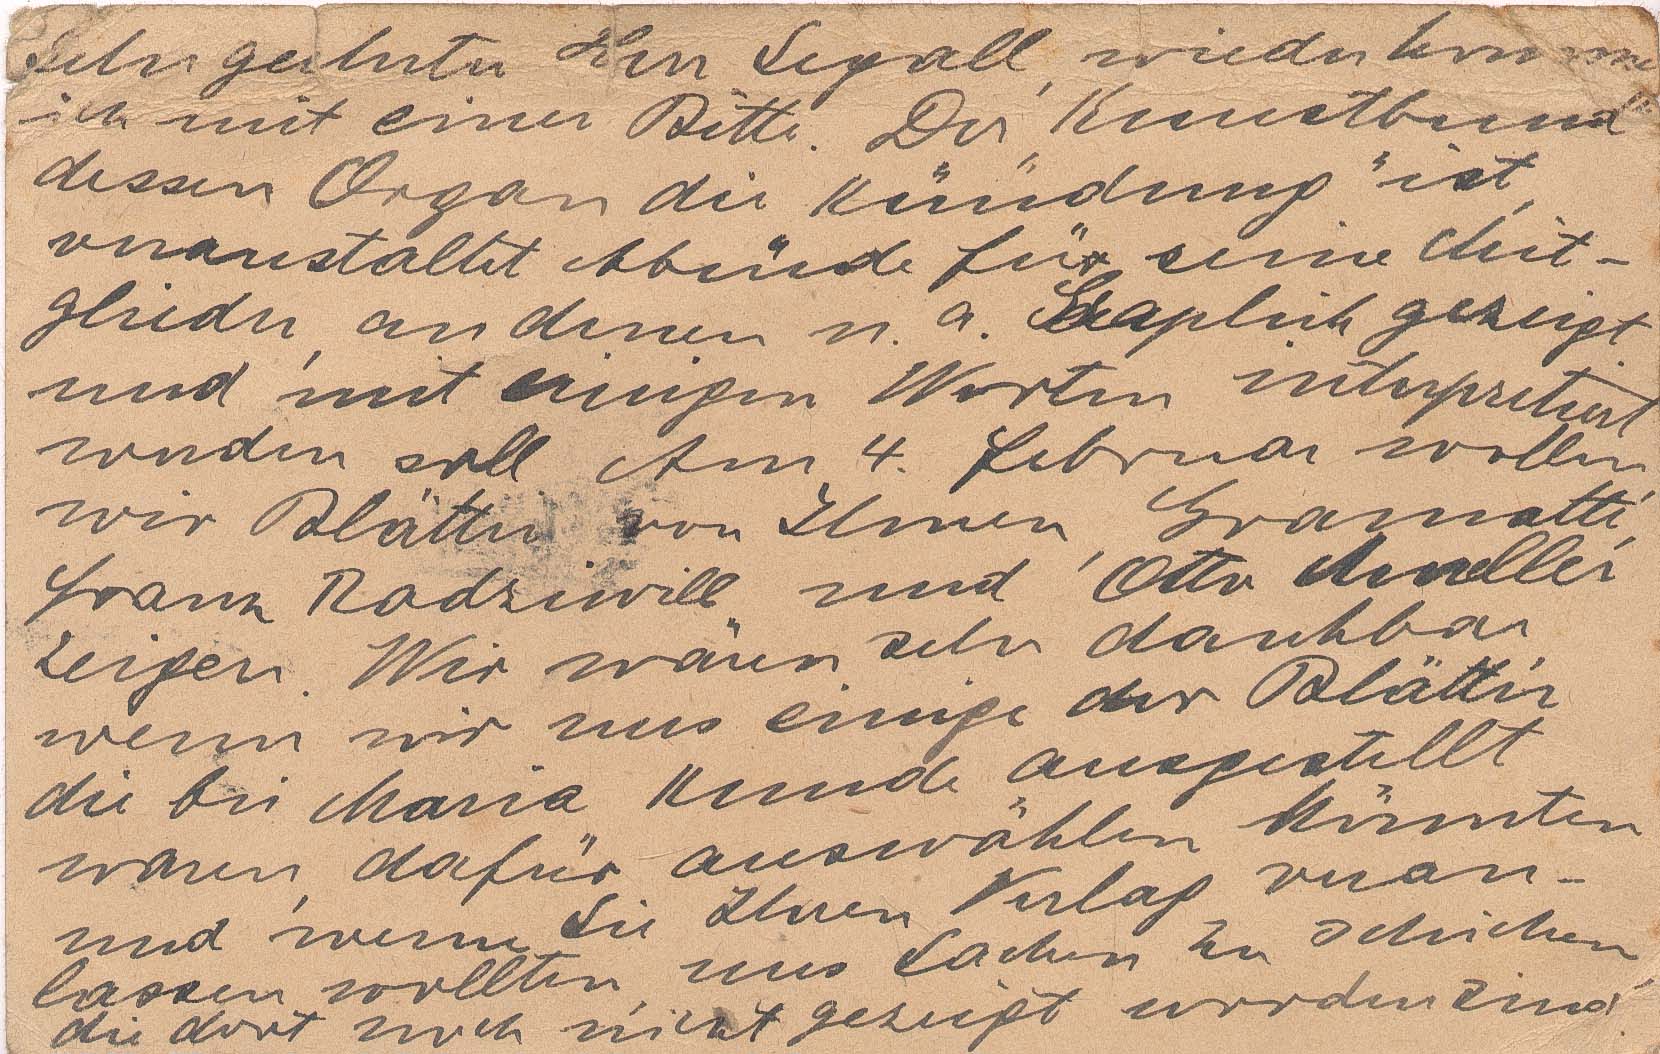 Sehr geehrter Herr Segall, wieder komme
ich mit einer Bitte. Der Kunstbund
dessen Organ die Kündung" ist,
veranstaltet Abende für seine Mit-
glieder, an denen u. a. Graphik gezeigt
und mit einigen Worten interpretiert
werden soll Am 4. Februar wollen
wir Blätter von Ihnen, Gramatté,
Franz Radziwill und Otto Mueller
zeigen. Wir wären sehr dankbar
wenn wir uns einige der Blätter
die bei Maria Kunde ausgestellt
waren, dafür auswählen könnten
und wenn Sie Ihren Verlag veran-
lassen wollten, uns Sachen zu schicken
die dort noch nicht gezeigt worden sind